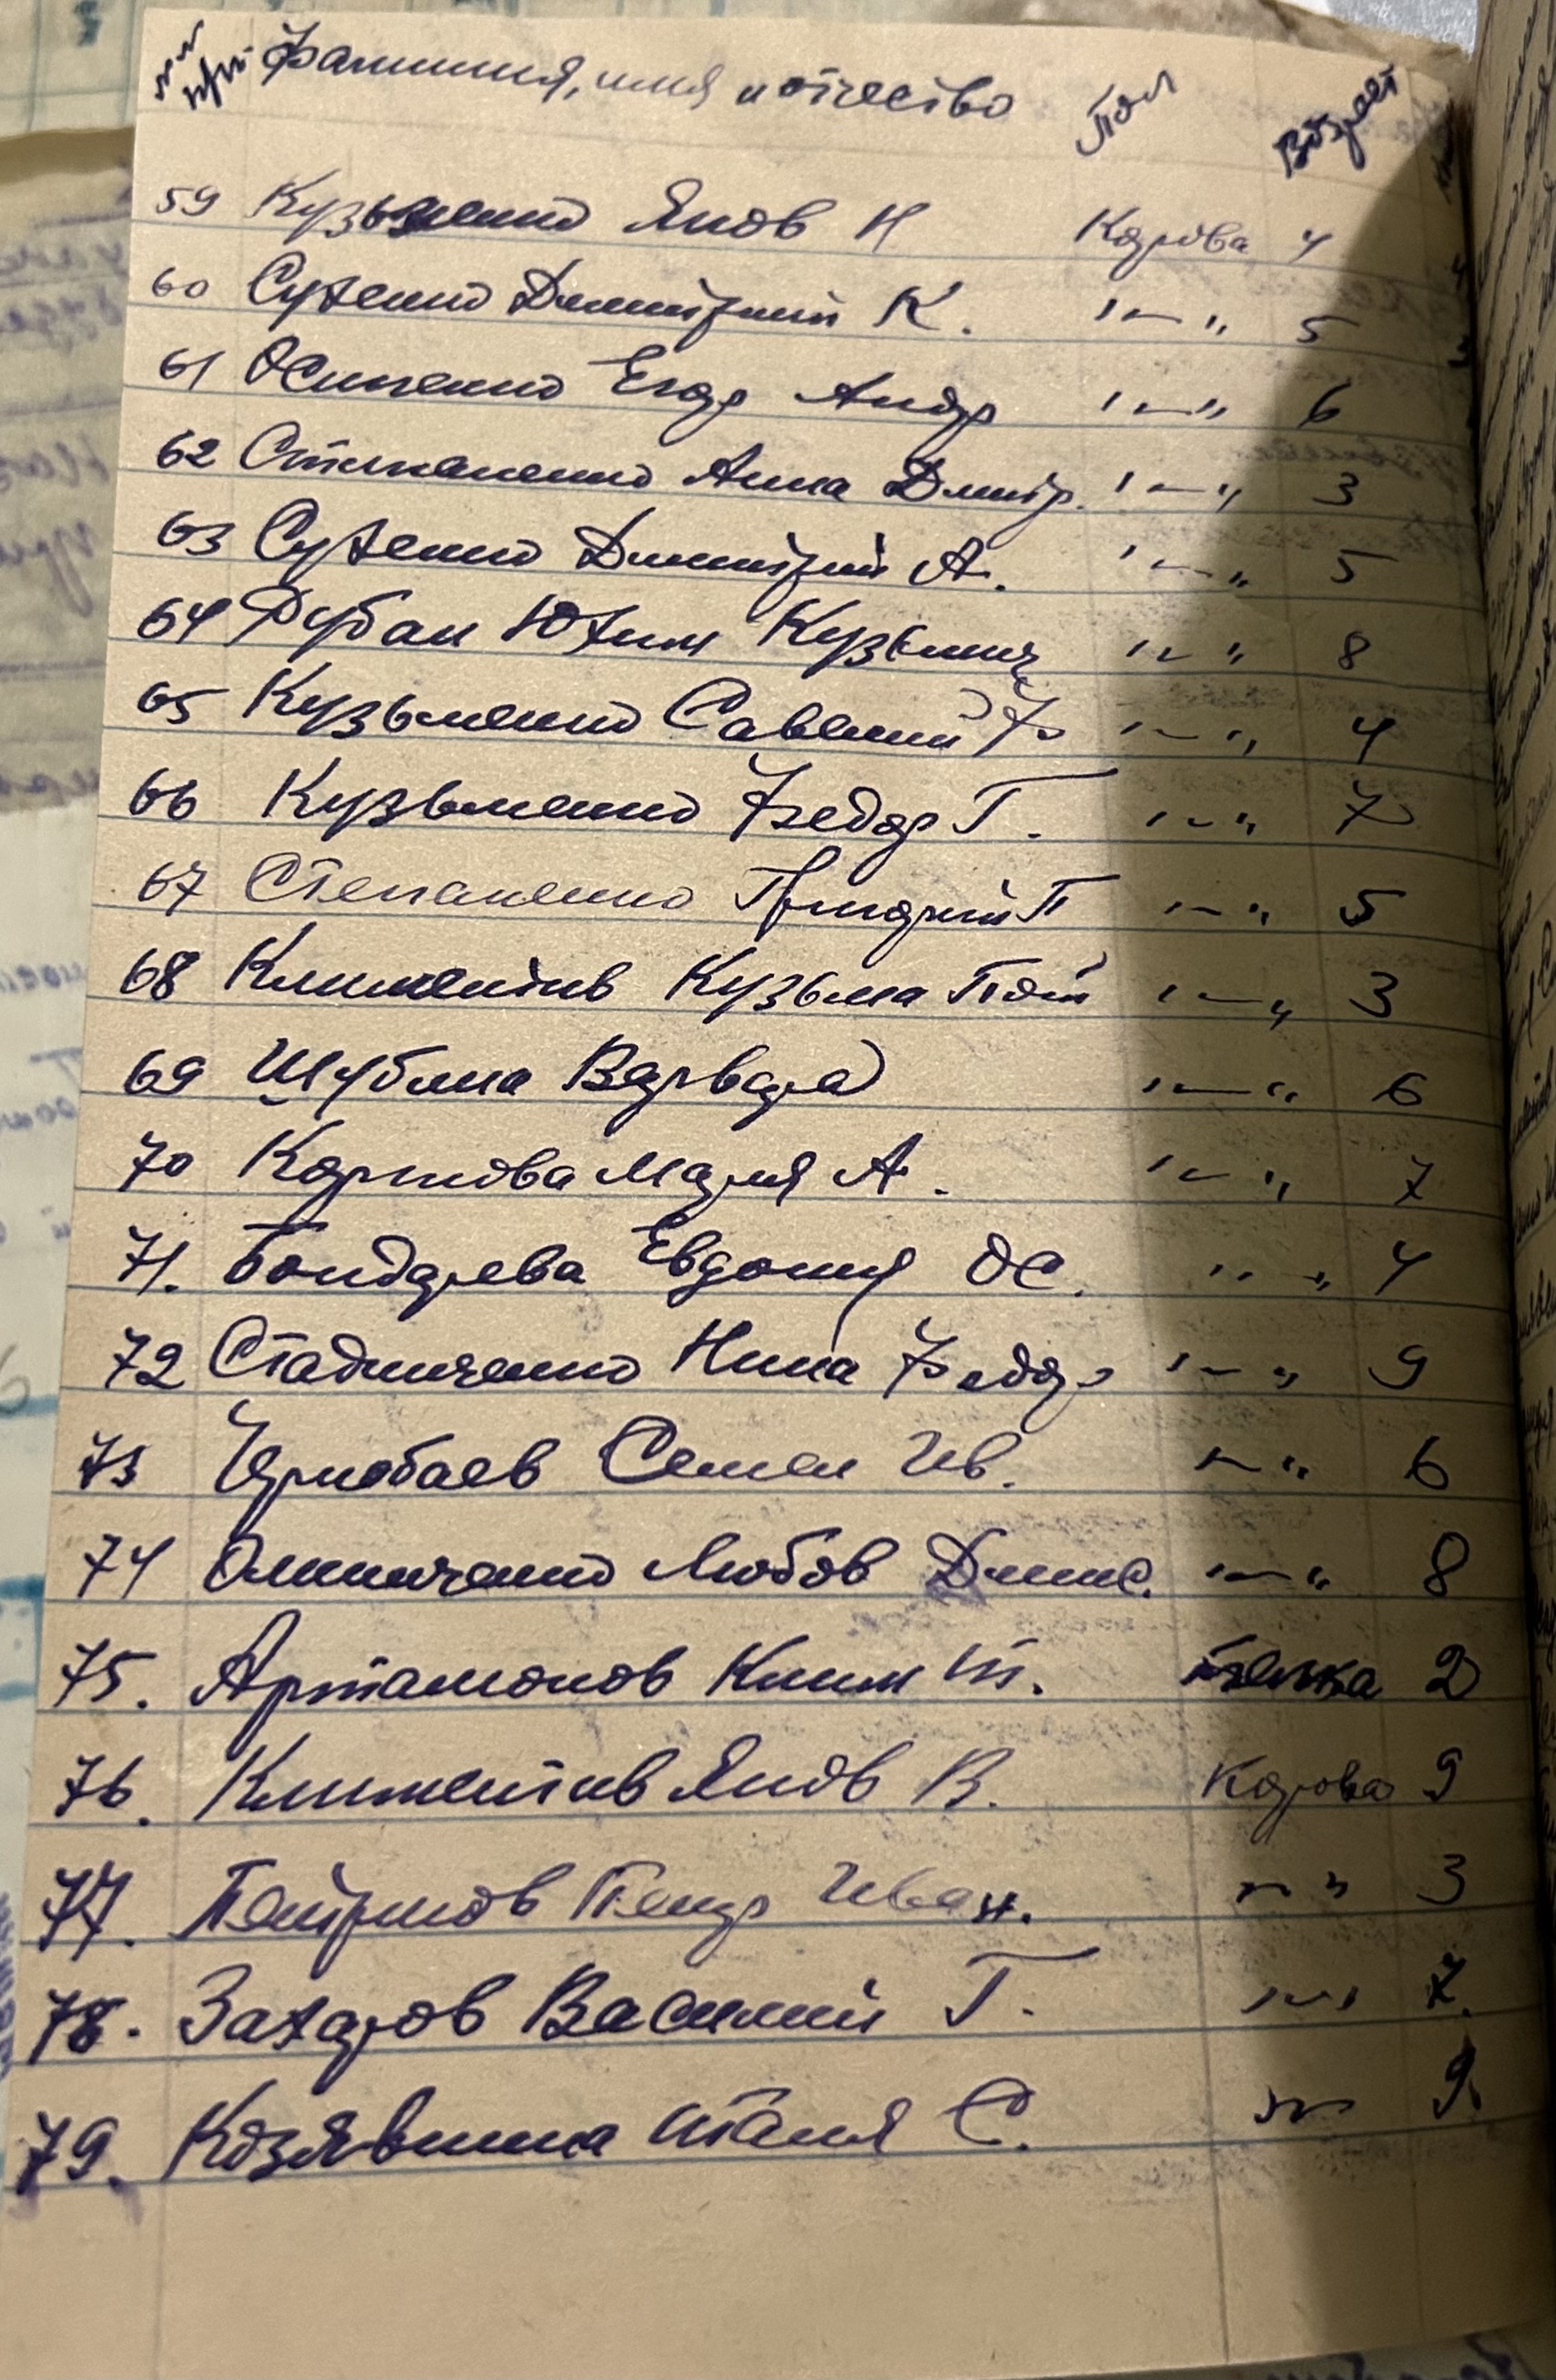 №№ п/п. Фамилия, имя и отчество Пол Возраст
59 Кузьменко Яков Н Корова 4
60 Сухенко Димитрий К. "—" 5
61 Осипенко Егор Андр "—" 6
62 Степаненко Анна Дмитр. "—" 3
63 Сухенко Димитрий А. "—" 5
64 Рубан Юхим Кузьмич "—" 8
65 Кузьменко Савелий Ф "—" 4
66 Кузьменко Федор Г. "—" 7
67 Степаненко Григорий П "—" 5
68 Климентив Кузьма Пот "—" 3
69 Шубина Варвара "—" 6
70 Коркова Мария А. "—" 7
71. Бондарева Евдокия Ос. "—" 4
72 Стадниченко Нина Федор "—" 9
73 Чернобаев Семен Ив. "—" 6
74 Омельченко Любов Дмит. "—" 8
75. Артамонов Клим Т. телка 2
76. Климентив Яков В. Корова 9
77. Петриков Петр Иван. "—" 3
78. Захаров Василий Г. "—" 7.
79. Козявкина Таня С. "—" 9.